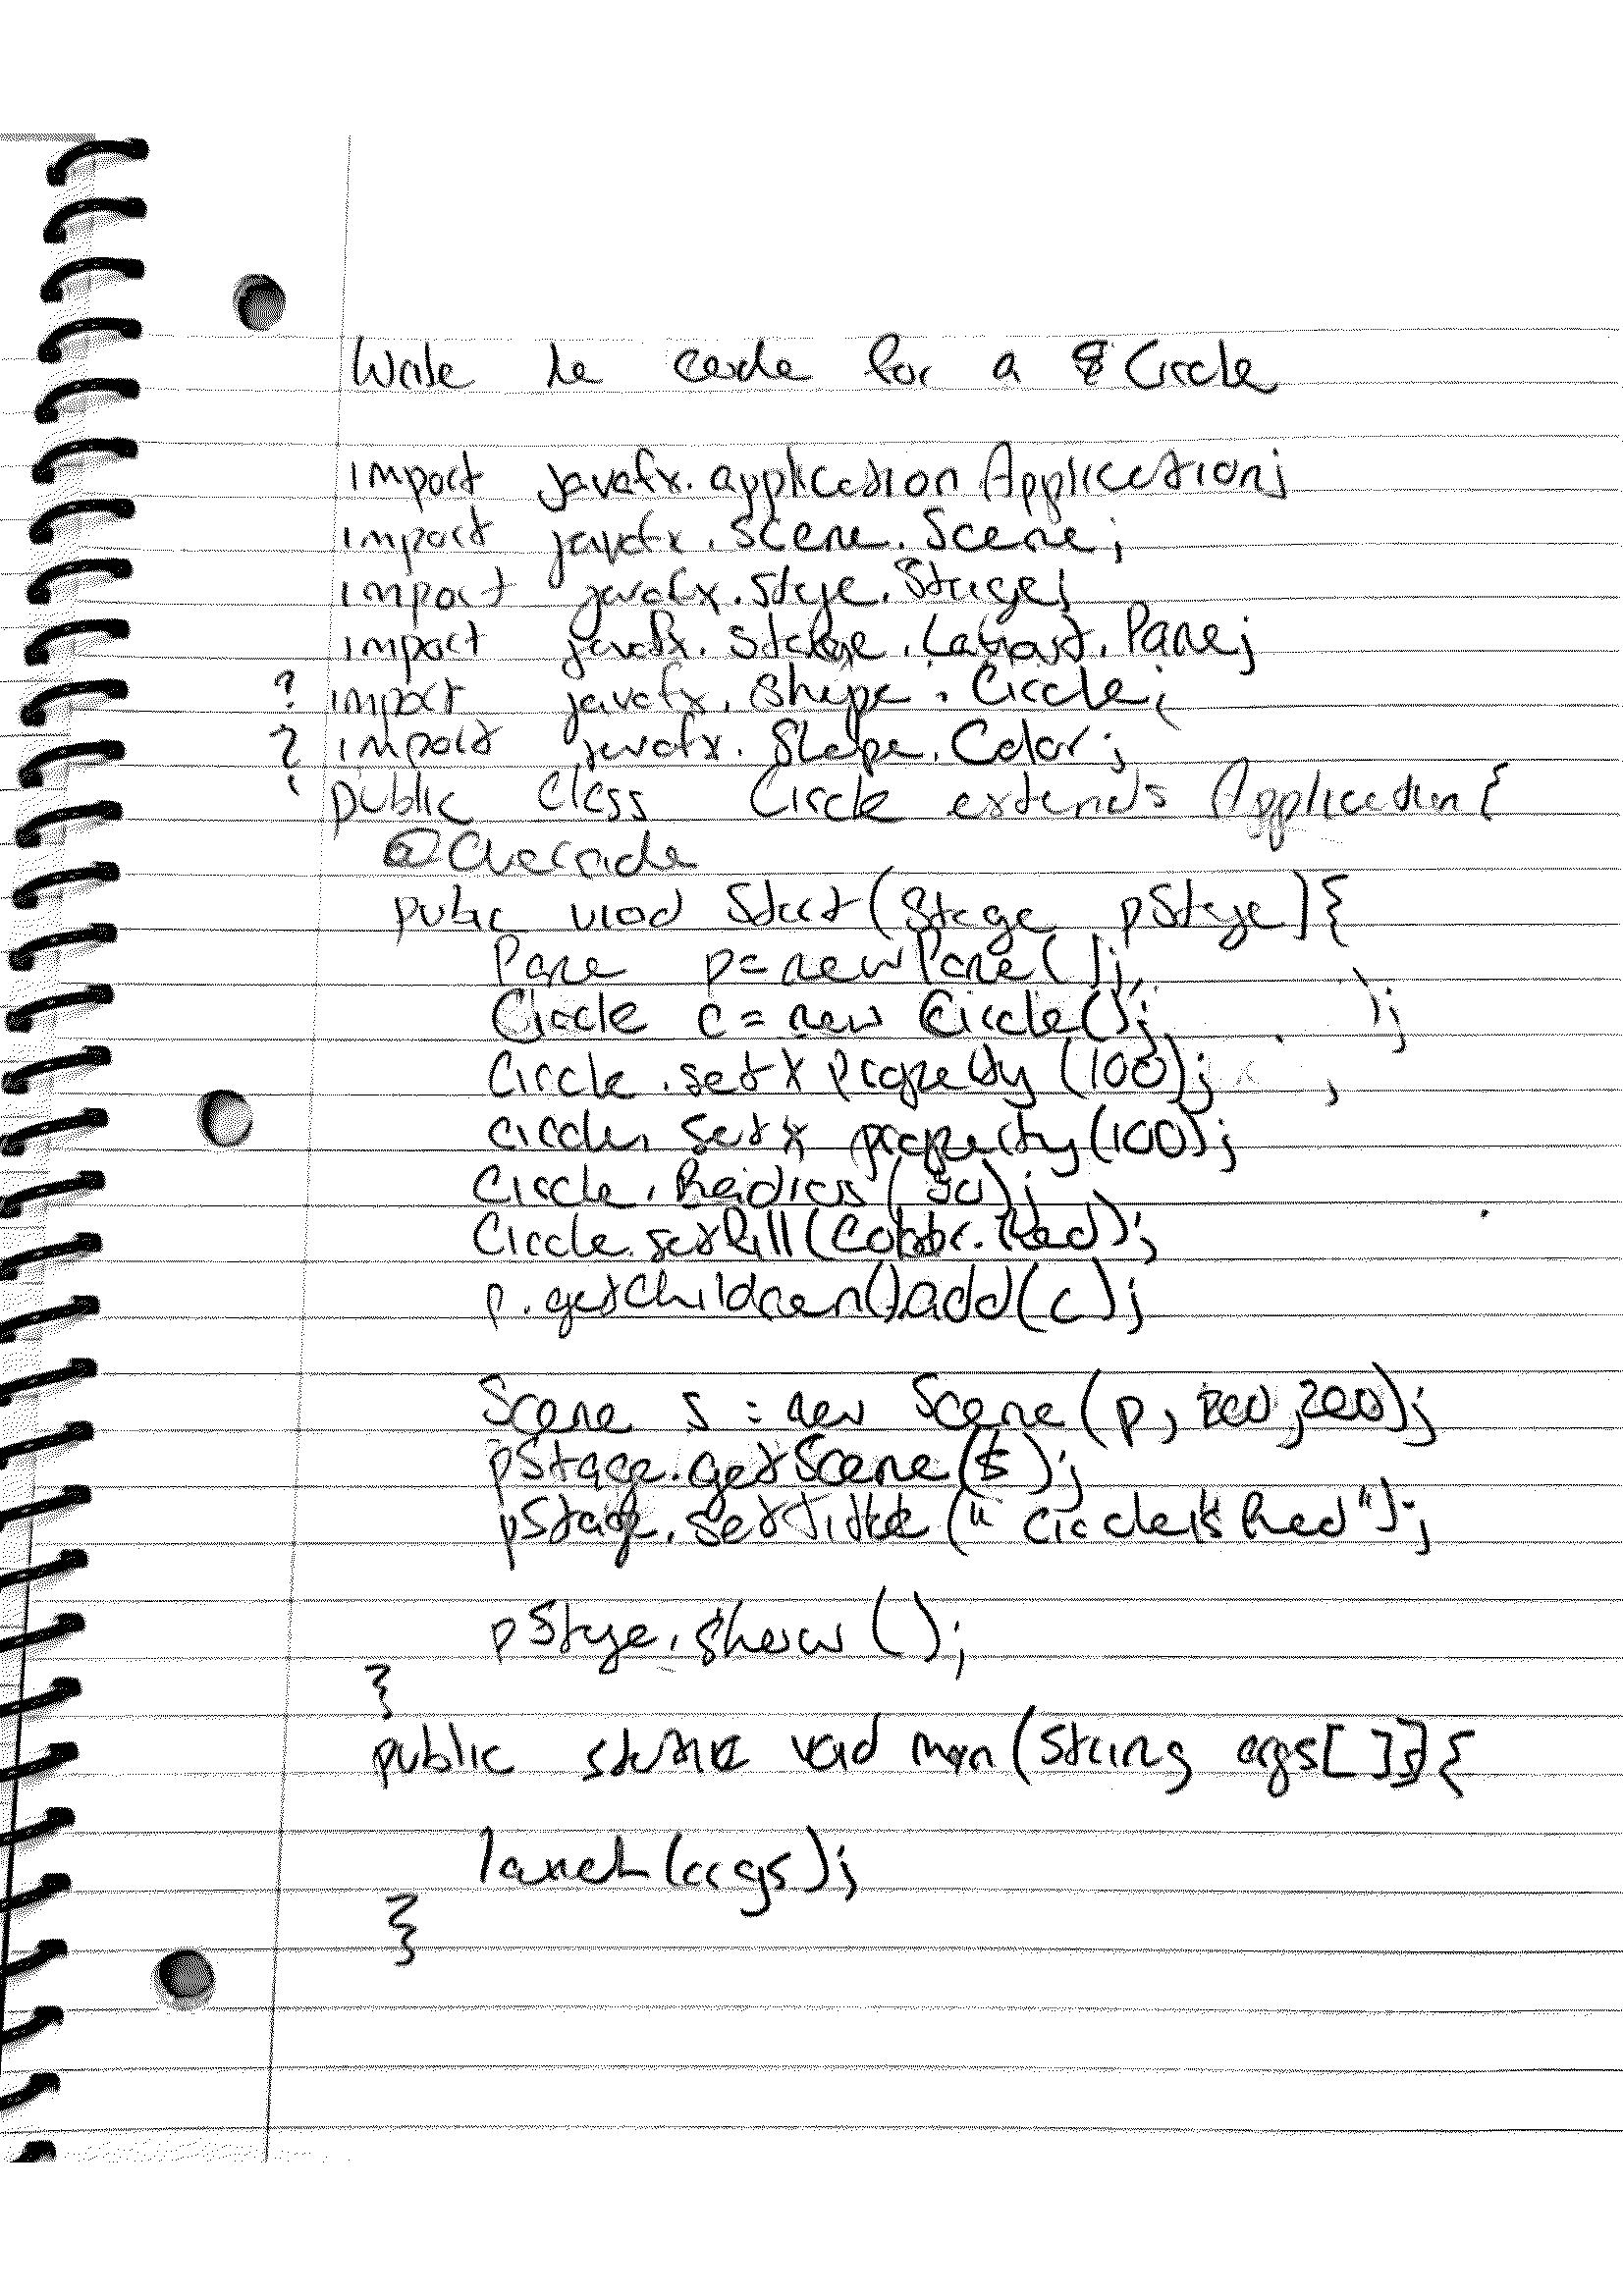 Write the code for a Circle
import javafx.application Application;
import javafx.scene.Scene;
import javafx.stage.Stage;
import javafx.stage.Layout.Pane;
? import javafx.shape.Circle;
? import javafx.Shape.Color;
public class Circle extends Application {
@Override
public viod Start(Stage pStage){
Pane p = new Pane();
Circle c = new Circle(); );
Circle.setX property (100); ,
circle. setx property(100);
Circle.Radius(50);
Circle.setFill(Color.Red);
p.getChildren().add(c);
Scene s = new Scene(p, 200,200);
pStage.getScene(s);
pStage.setTitle("Circle is Red");
pStage.show();
}
public static void main(String args[]){
launch(args);
}